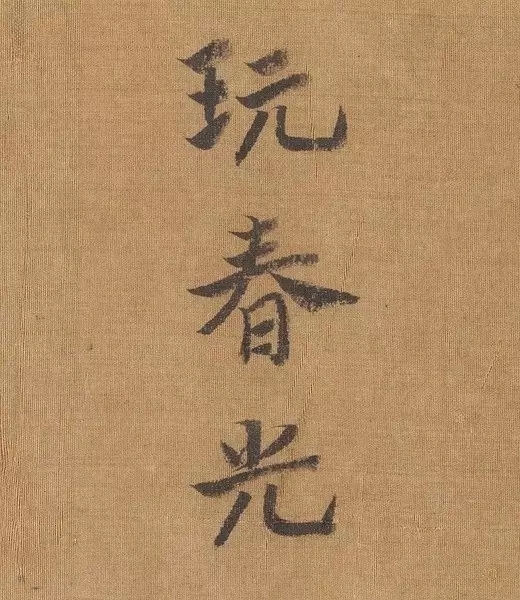 玩春光